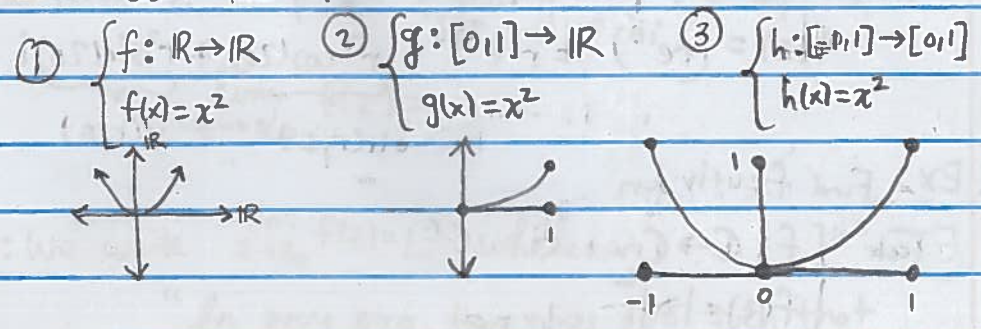 ① f: ℝ→ℝ
f(x)=x²
② g: [0,1]→ℝ
g(x)=x²
③ h: [-1,1]→[0,1]
h(x)=x²
ℝ
ℝ
1
1
-1
0
1